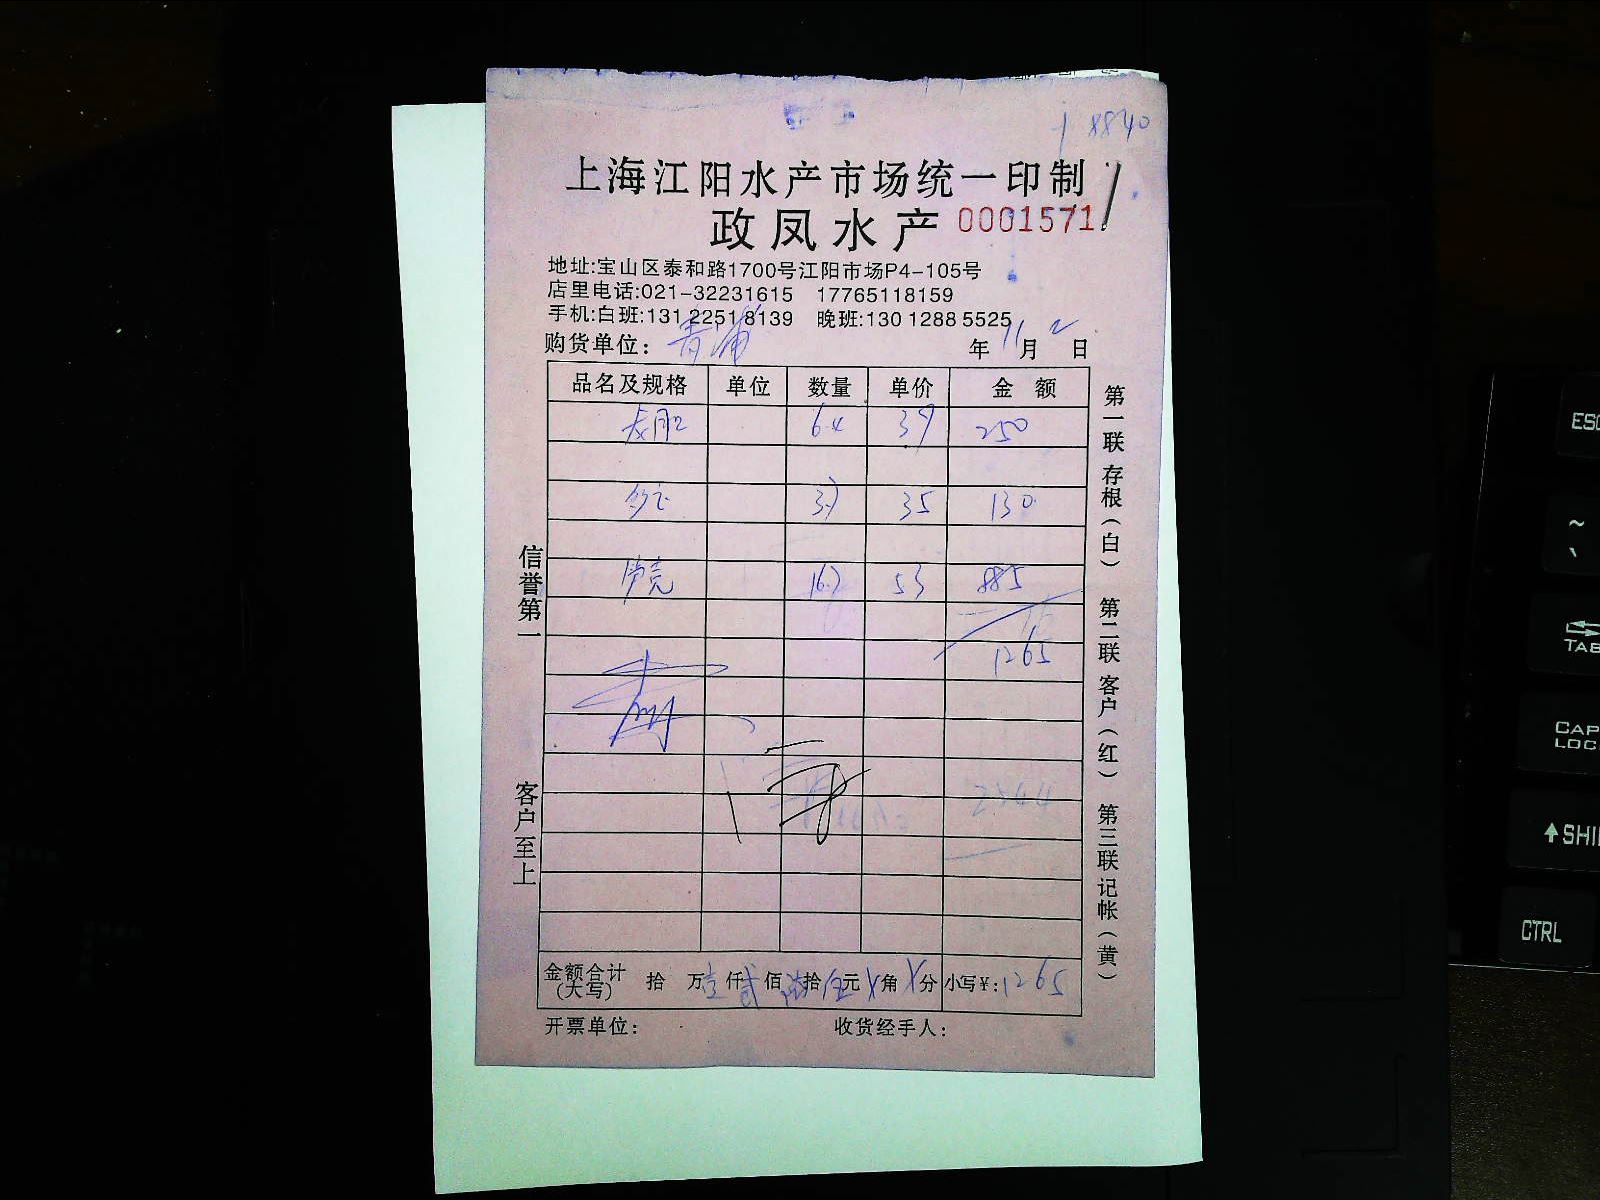 18840
上海江阳水产市场统一印制
政凤水产 0001571
地址:宝山区泰和路1700号江阳市场P4-105号
店里电话:021-32231615 17765118159
手机:白班:131 2251 8139 晚班:130 1288 5525
购货单位: 青浦 年 11 月 2 日
品名及规格 单位 数量 单价 金 额
6.4 39 250
3.7 35 130
16.7 53 885
1265
金额合计(大写) 拾 万 壹 仟 贰 佰 陆 拾 伍 元 X 角 X 分 小写¥: 1265
开票单位: 收货经手人:
信誉第一
客户至上
第一联 存根(白) 第二联 客户(红) 第三联 记帐(黄)
ESC
~
TAB
CAPS
LOCK
SHI
CTRL